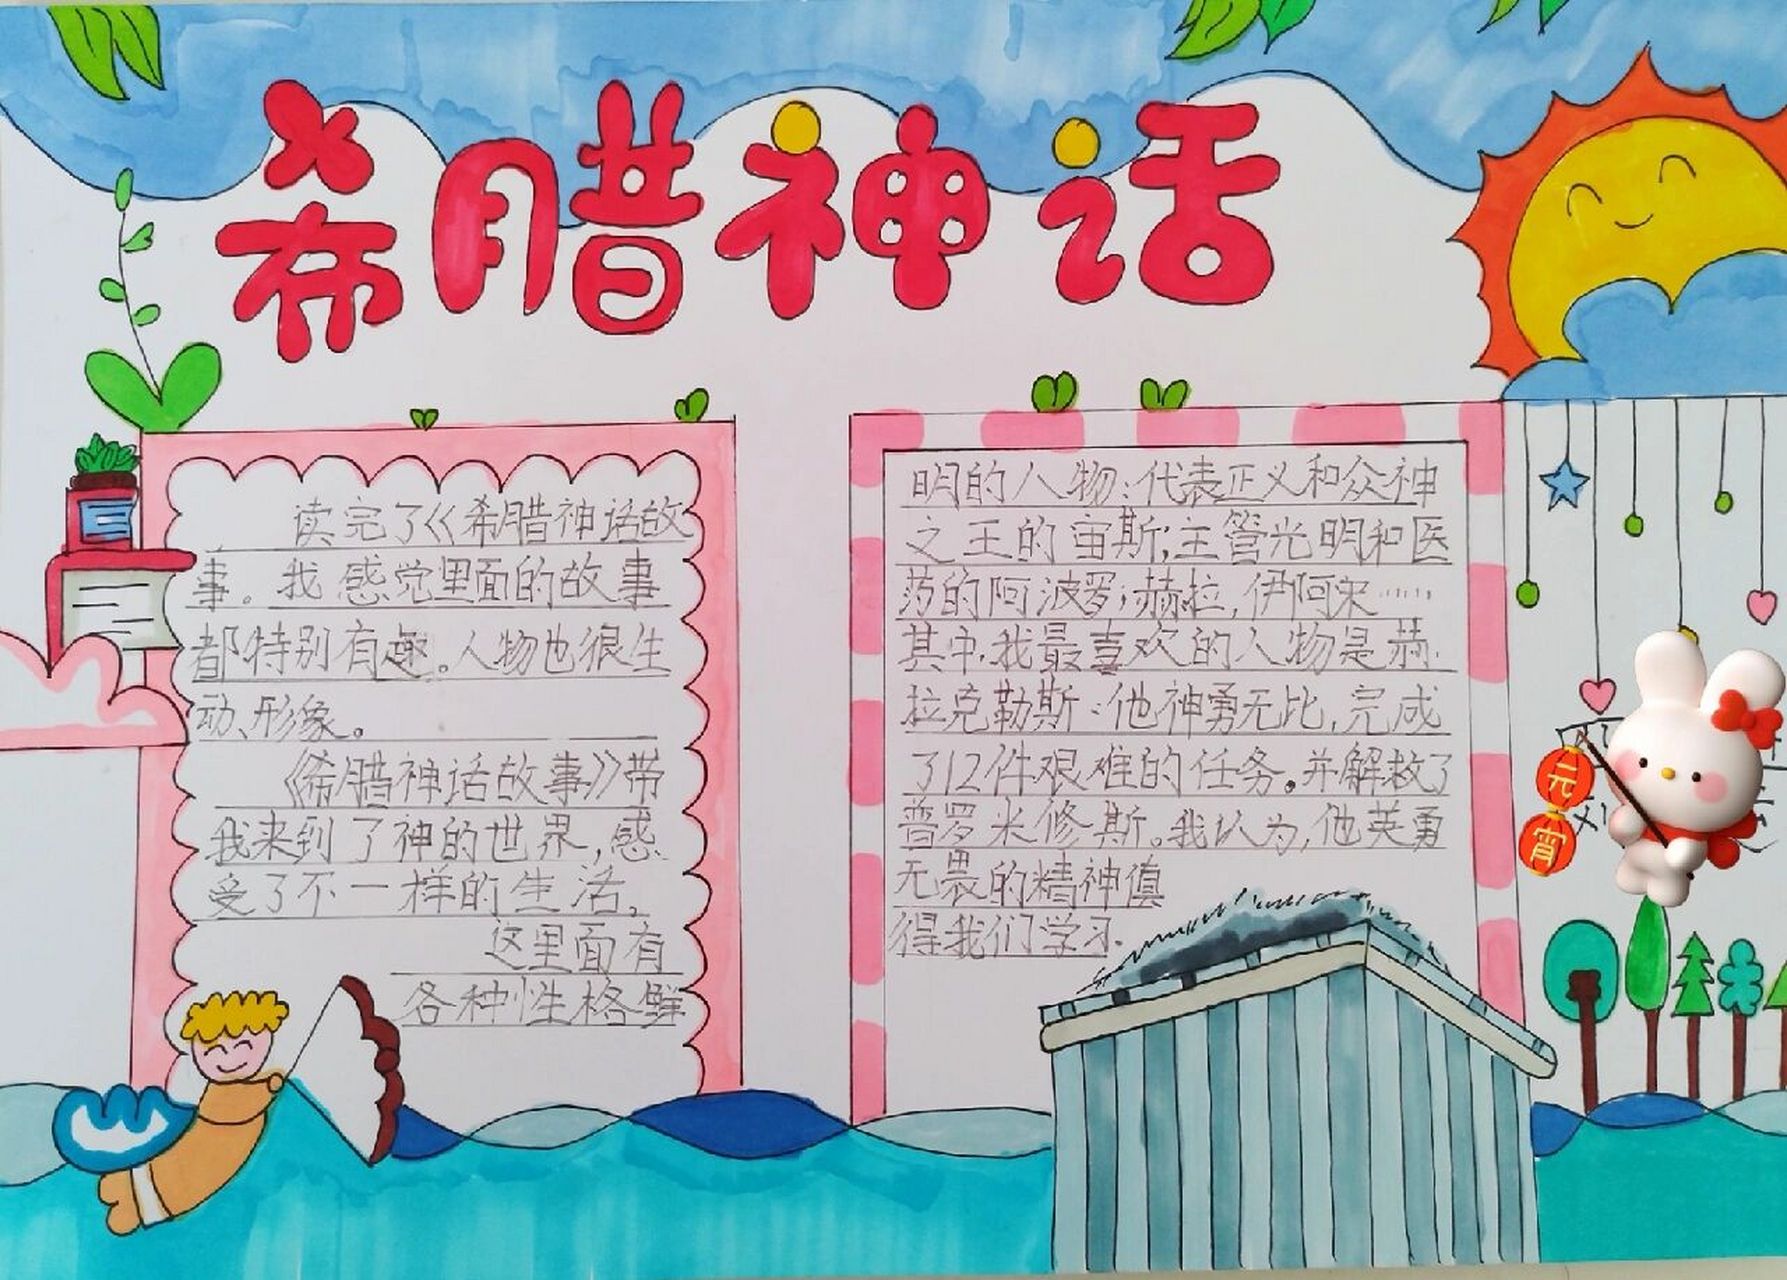 希腊神话
读完了《希腊神话故
事。我感觉里面的故事
都特别有趣。人物也很生
动、形象。
《希腊神话故事》带
我来到了神的世界,感
受了不一样的生活。
这里面有
各种性格鲜
明的人物:代表正义和众神
之王的宙斯;主管光明和医
药的阿波罗;赫拉,伊阿宋……
其中,我最喜欢的人物是赫
拉克勒斯:他神勇无比,完成
了12件艰难的任务。并解救了
普罗米修斯。我认为,他英勇
无畏的精神值
得我们学习.
元
宵